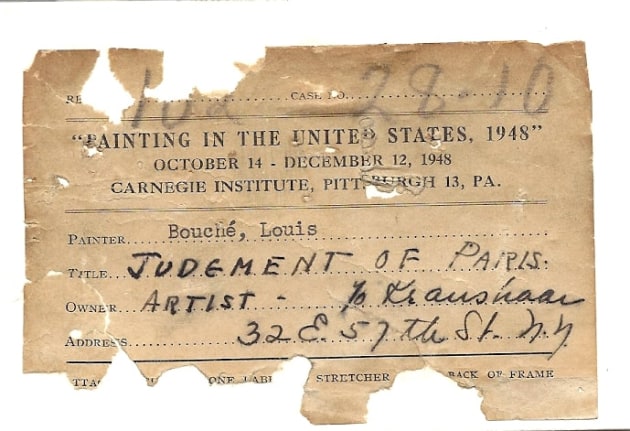 CASE NO. 28-10
"PAINTING IN THE UNITED STATES, 1948"
OCTOBER 14 - DECEMBER 12, 1948
CARNEGIE INSTITUTE, PITTSBURGH 13, PA.
PAINTER Bouché, Louis
TITLE JUDGMENT OF PARIS.
OWNER ARTIST - % Kraushaar
ADDRESS 32 E. 57th St. N.Y
ONE LABEL STRETCHER BACK OF FRAME